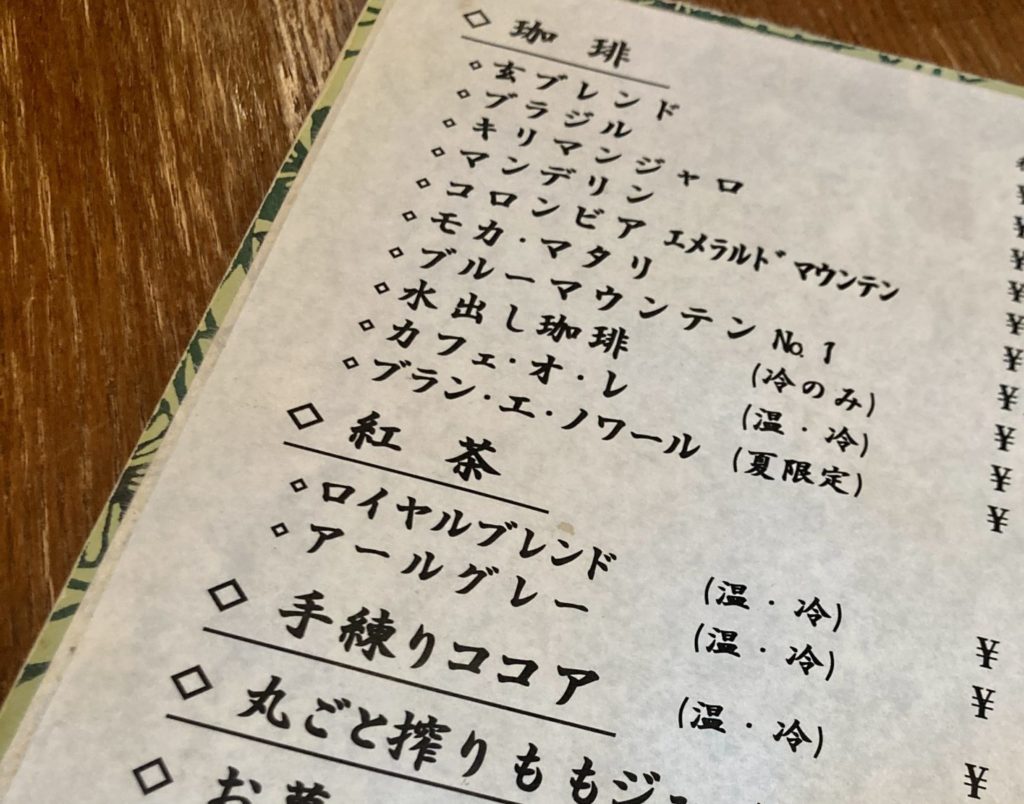 ◇ 珈 琲
◇ 玄ブレンド
◇ ブラジル
◇ キリマンジャロ
◇ マンデリン
◇ コロンビア エメラルドマウンテン
◇ モカ・マタリ
◇ ブルーマウンテン No.1
◇ 水出し珈琲 (冷のみ) ¥
◇ カフェ・オ・レ (温・冷) ¥
◇ ブラン・エ・ノワール (夏限定) ¥
◇ 紅 茶
◇ ロイヤルブレンド (温・冷) ¥
◇ アールグレー (温・冷) ¥
◇ 手練りココア (温・冷) ¥
◇ 丸ごと搾りももジ
◇ お